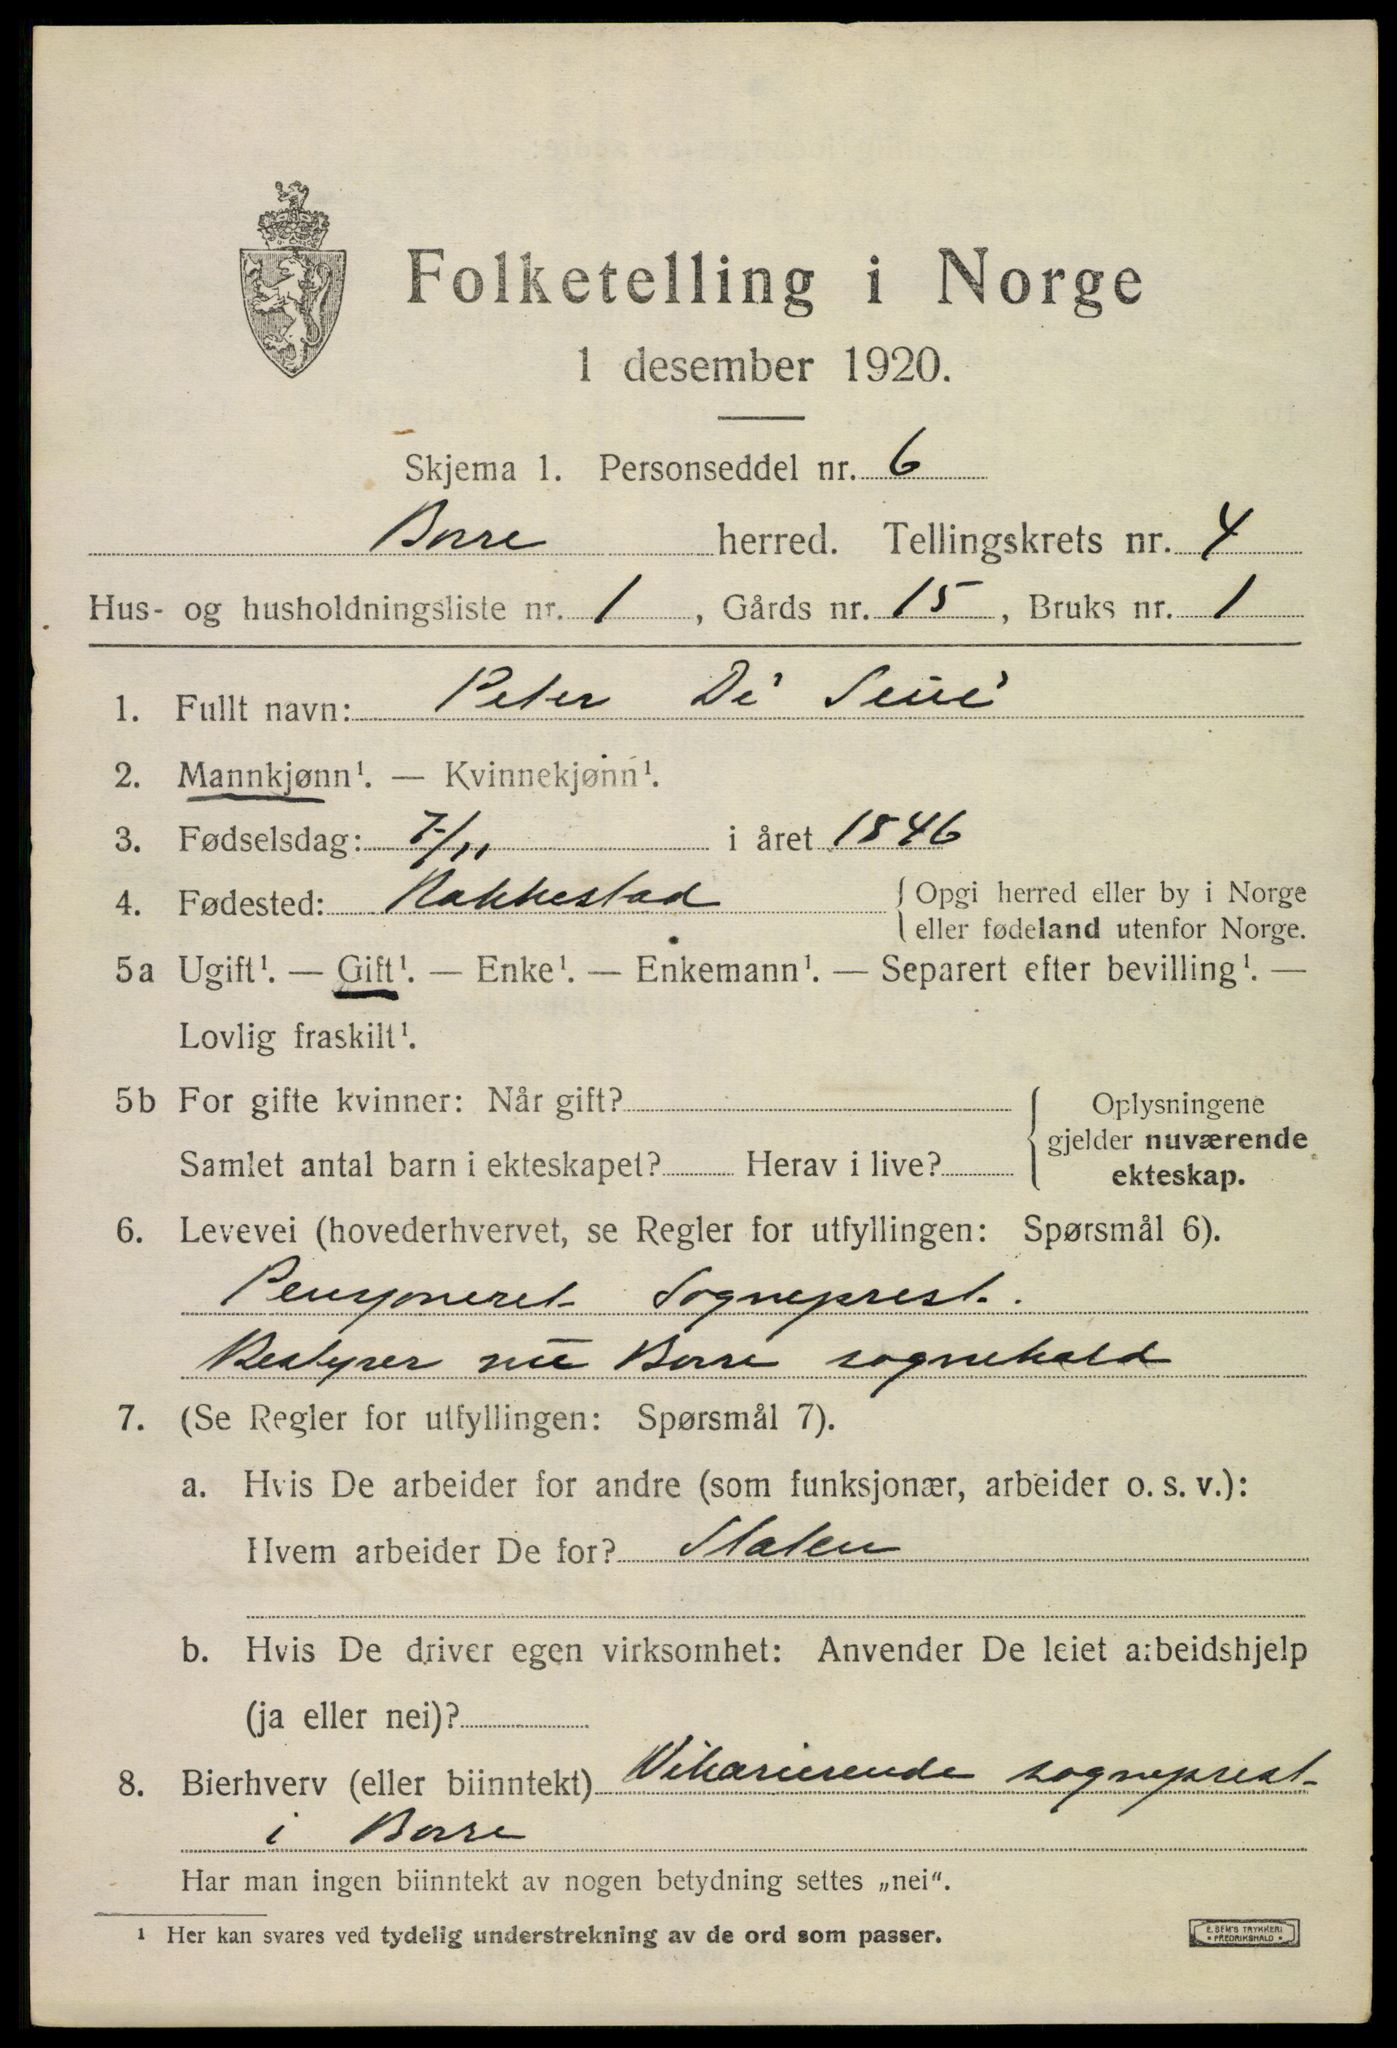 Folketelling i Norge
1 desember 1920.
Skjema 1. Personseddel nr. 6
Borre herred. Tellingskrets nr. 4
Hus- og husholdningsliste nr. 1, Gårds nr. 15, Bruks nr. 1
1. Fullt navn: Peter De' Seue'
2. Mannkjønn¹. — Kvinnekjønn¹.
3. Fødselsdag: 7/11 i året 1846
4. Fødested: Rakkestad { Opgi herred eller by i Norge
eller fødeland utenfor Norge.
5a Ugift¹. — Gift¹. — Enke¹. — Enkemann¹. — Separert efter bevilling¹. —
Lovlig fraskilt¹.
5b For gifte kvinner: Når gift?
Samlet antal barn i ekteskapet? Herav i live?
{ Oplysningene
gjelder nuværende
ekteskap.
6. Levevei (hovederhvervet, se Regler for utfyllingen: Spørsmål 6).
Pensjoneret Sogneprest.
Bestyrer nu Borre sognekald
7. (Se Regler for utfyllingen: Spørsmål 7).
a. Hvis De arbeider for andre (som funksjonær, arbeider o. s. v.):
Hvem arbeider De for? Staten
b. Hvis De driver egen virksomhet: Anvender De leiet arbeidshjelp
(ja eller nei)?
8. Bierhverv (eller biinntekt) Vikarierende sogneprest
i Borre
Har man ingen biinntekt av nogen betydning settes „nei“.
¹ Her kan svares ved tydelig understrekning av de ord som passer.
E. SEM'S TRYKKERI
* FREDRIKSHALD *